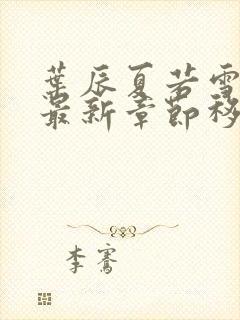 葉辰夏若雪
最新章節移
李騫